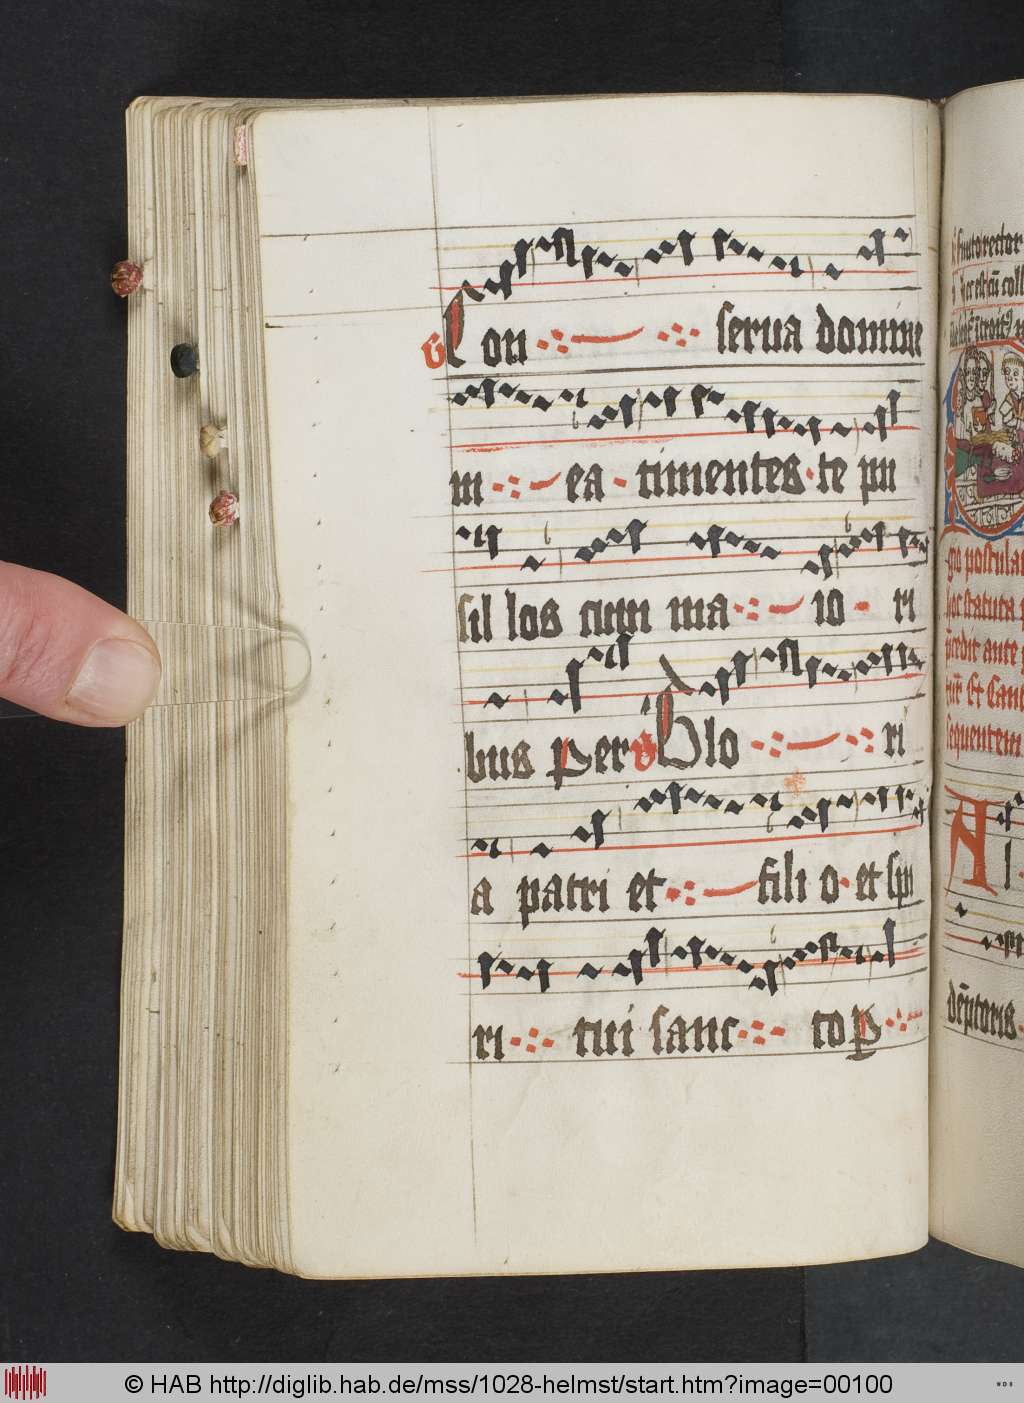 V Con serua domine
in ea timentes te pu
sil los cum ma io ri
bus Per V Glo ri
a patri et fili o et spi
ri tui sanc to P
gno postulat
hoc statuta
cedit ante
tur Et Can
sequentem
A l
dēptoris
© HAB http://diglib.hab.de/mss/1028-helmst/start.htm?image=00100